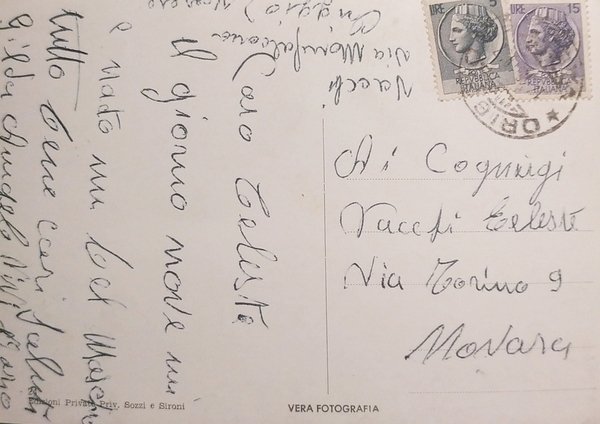 Vacchi
Via Monfalcone
Caro Celeste
il giorno nove mi
è nato un bel Maschi
tutto bene cari saluti
5
LIRE
REPVBBLICA
ITALIANA
LIRE 15
REPVBBLICA
ITALIANA
Ai Cogniugi
Vacchi Celeste
Via Torino 9
Novara
Edizioni Private Priv. Sozzi e Sironi
VERA FOTOGRAFIA